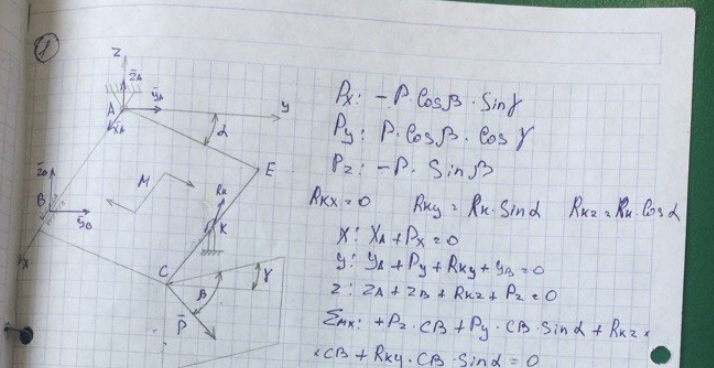 1
z
Z̄A
ȳA
A
X̄A
y
α
E
z̄B
M
B
ȳB
R̄k
K
x
C
γ
β
P̄
Px: -P·Cosβ·Sinγ
Py: P·Cosβ·Cosγ
Pz: -P·Sinβ
Rkx = 0 Rky = Rk·Sinα Rkz = Rk·Cosα
x: XA + Px = 0
y: YA + Py + Rky + YB = 0
z: ZA + ZB + Rkz + Pz = 0
Σmx: +Pz·CB + Py·CB·Sinα + Rkz×
×CB + Rky·CB·Sinα = 0